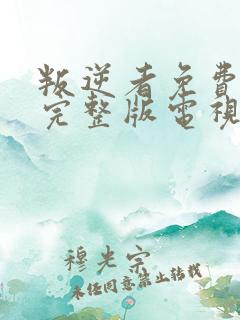 叛逆者免費
完整版電視
穆光宗
未经同意禁止转载